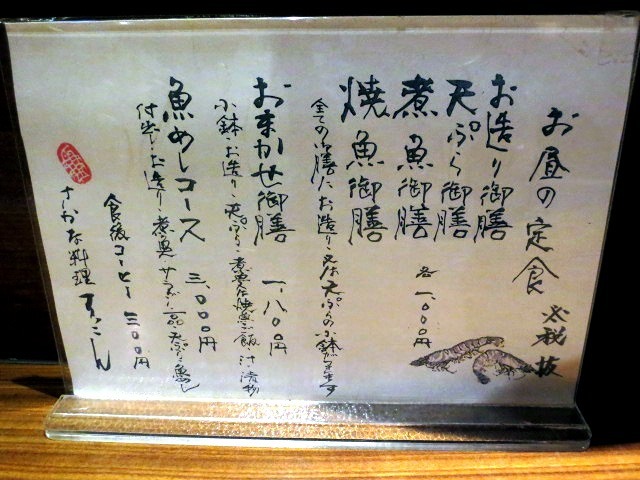 お昼の定食
税抜
お造り御膳
天ぷら御膳
煮魚御膳 各一、〇〇〇円
焼魚御膳
全ての御膳にお造り又は天ぷらの小鉢が付きます
おまかせ御膳 一、八〇〇円
小鉢・お造り・天ぷら・煮魚又は焼魚・ご飯・汁・漬物
魚めしコース 三、〇〇〇円
付出し・お造り・煮魚・サラダ・一品・天ぷら・魚めし
食後コーヒー 三〇〇円
さかな料理